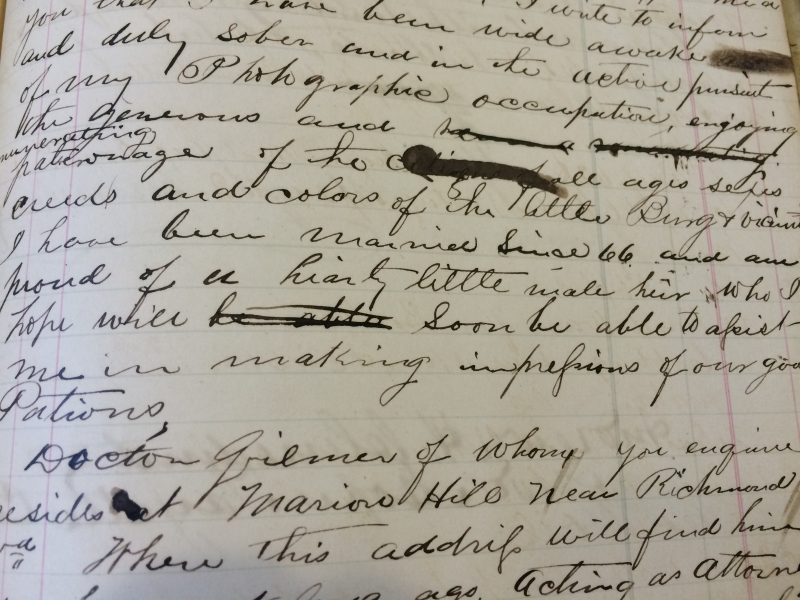 you that I have been wide awake I write to inform
and duly sober and in the active pursuit
of my Photographic occupation, engoying
the generous and
nunerating
patronage of the of all ages sexes
creeds and colors of the little Burg & vicinit
I have been married since 66 and am
proud of a hearty little male heir who I
hope will be able soon be able to assist
me in making impressions of our good
Patrons,
Doctor Gilmer of whom you enquire
resides at Marion Hill near Richmond
Va Where this address will find him
ago. Acting as Attorne